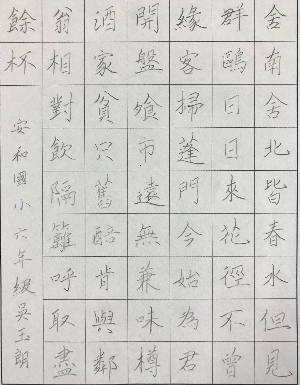 舍南舍北皆春水但見
群鷗日日來花徑不曾
緣客掃蓬門今始為君
開盤飧市遠無兼味樽
酒家貧只舊醅肯與鄰
翁相對飲隔籬呼取盡
餘杯
安和國小六年級吳玉朗